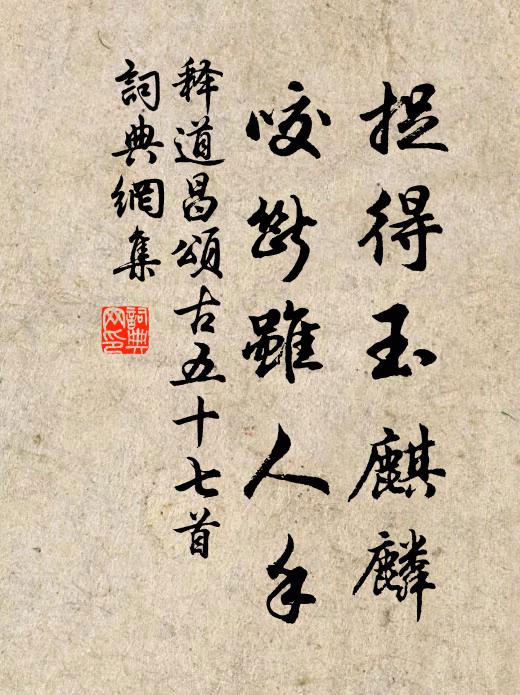 捉得玉麒麟
咬斷雖人手
释道昌頌古五十七首
詞典網集
詞典
网印